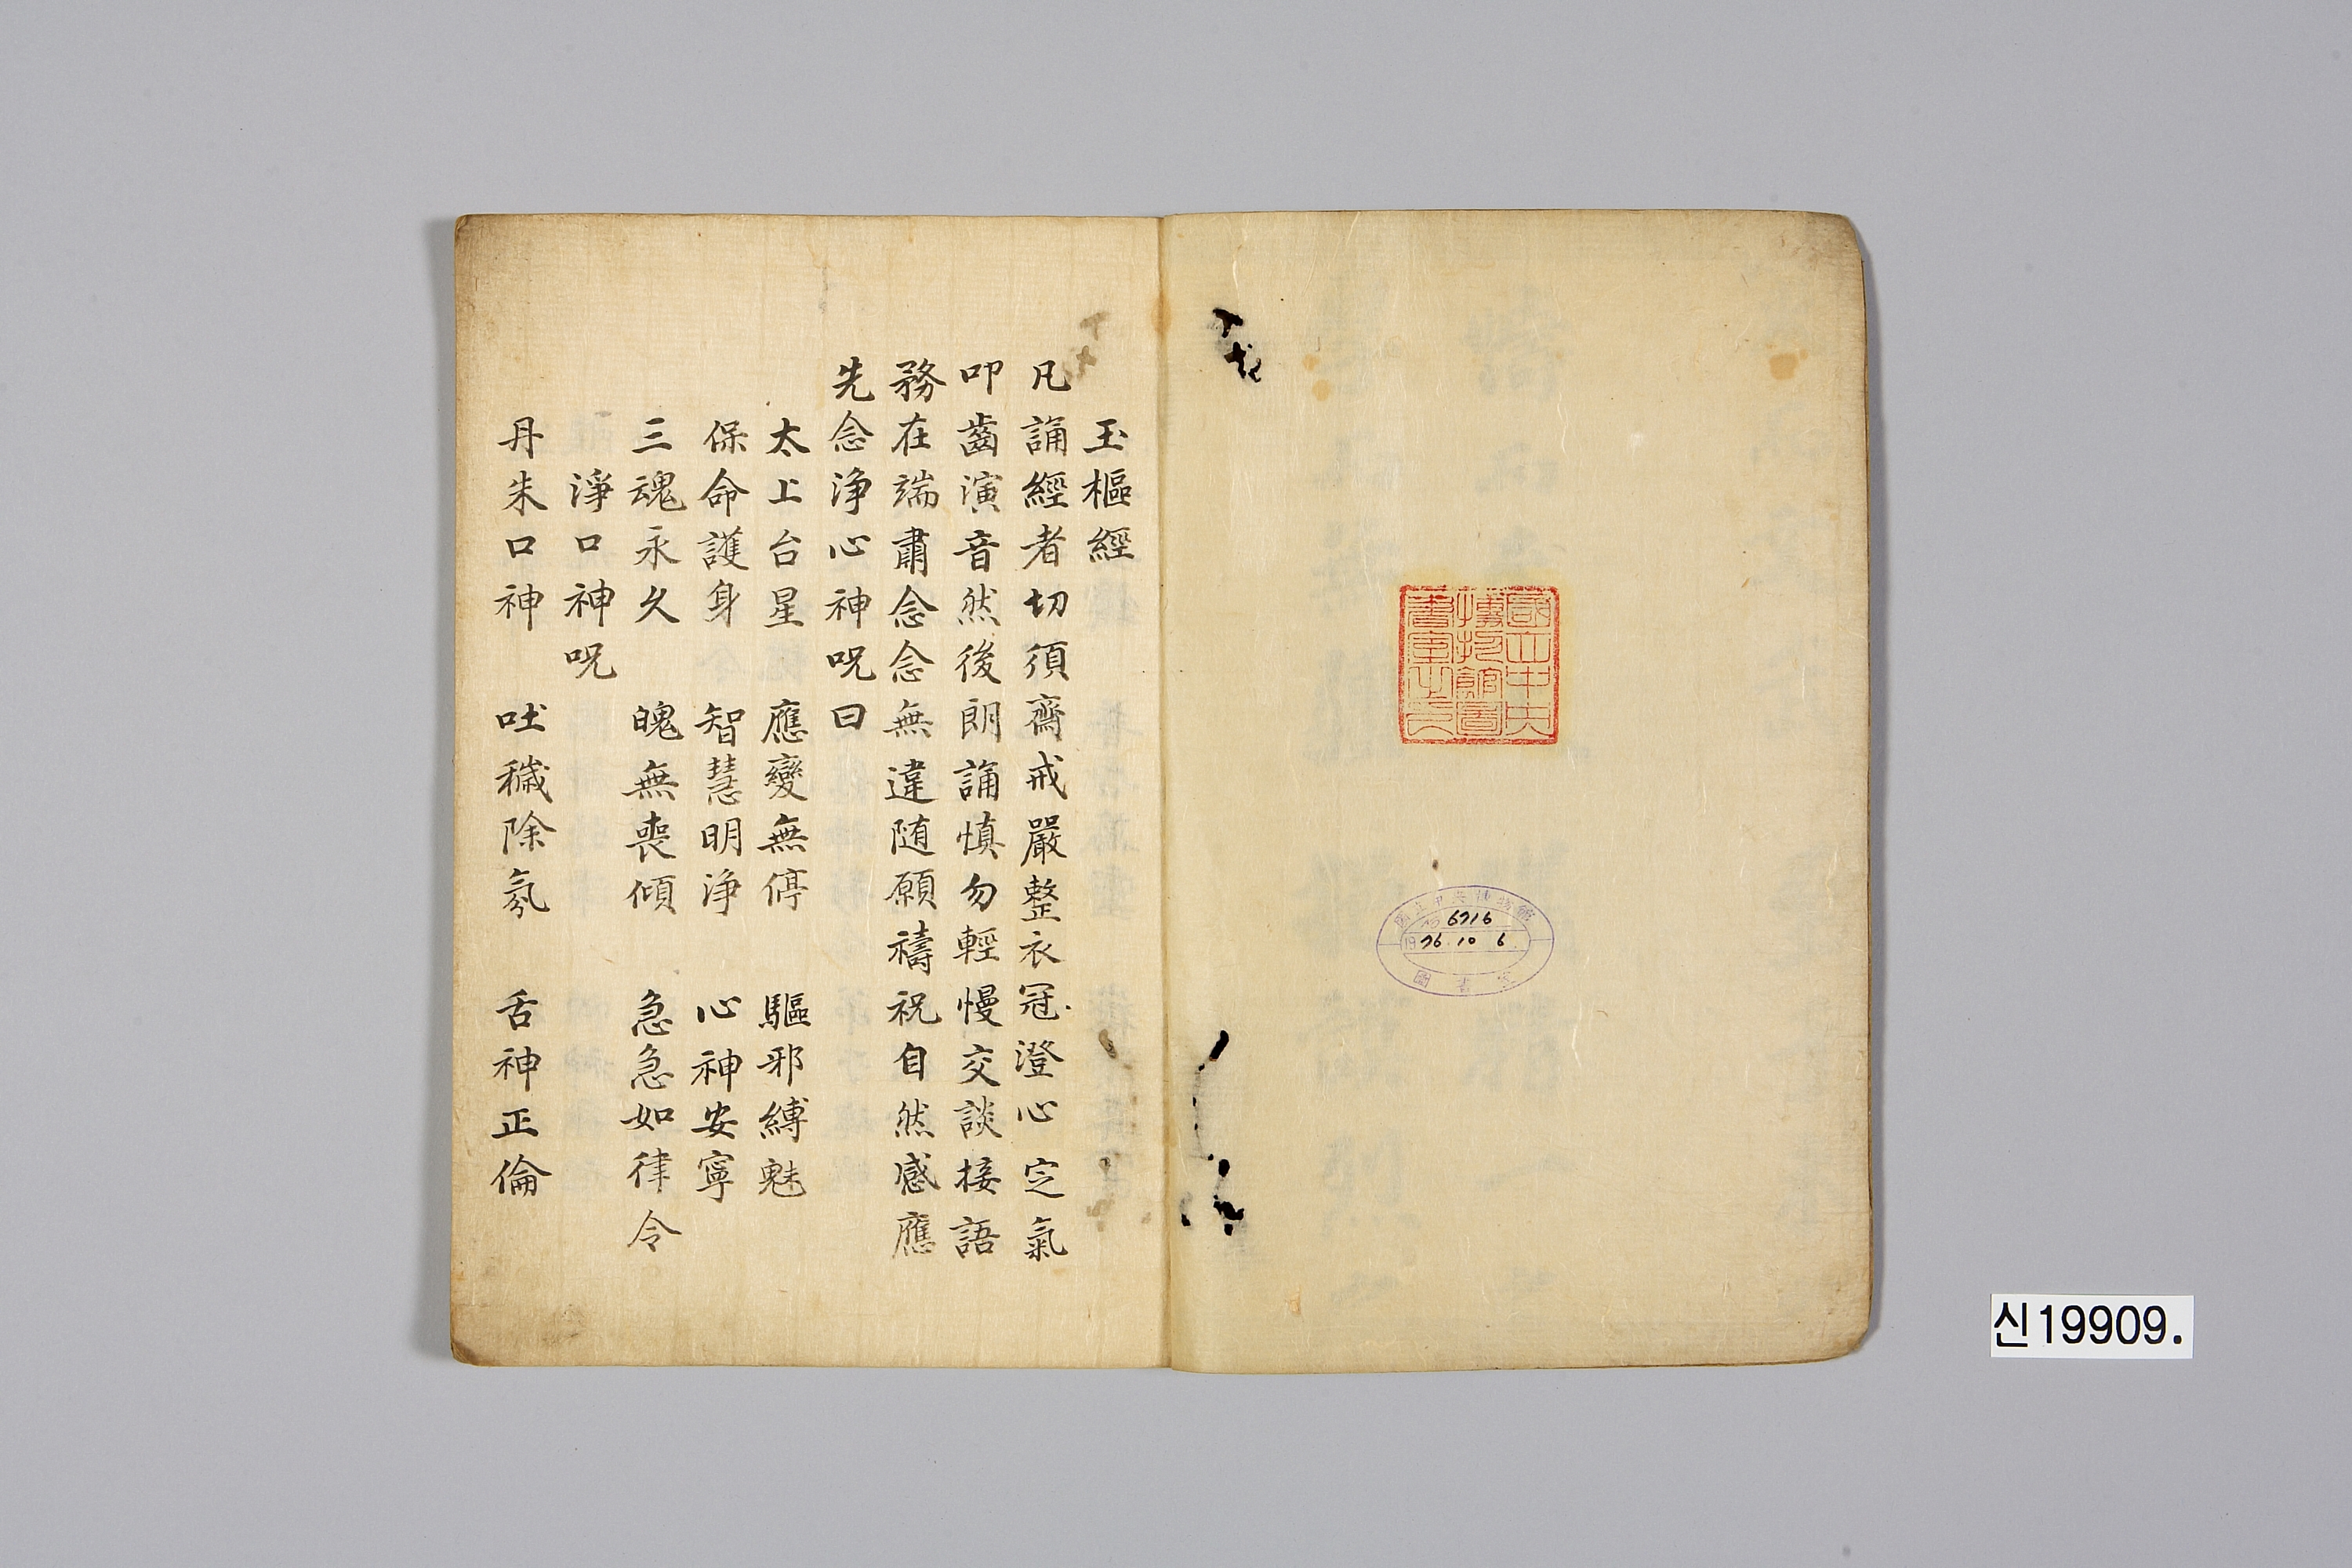 國立中央
博物館圖
書室之印
國立中央博物館
6716
1976.10 6.
圖書室
玉樞經
凡誦經者切須齋戒嚴整衣冠澄心定氣
叩齒演音然後朗誦慎勿輕慢交談接語
務在端肅念念無違随願禱祝自然感應
先念淨心神呪曰
太上台星 應變無停 驅邪縛魅
保命護身 智慧明淨 心神安寧
三魂永久 魄無喪傾 急急如律令
淨口神呪
丹朱口神 吐穢除氛 舌神正倫
신19909.